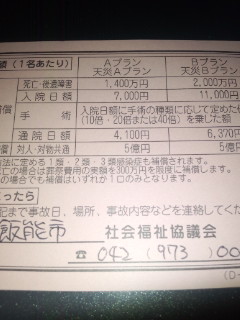 額（1名あたり） Aプラン 天災Aプラン Bプラン 天災Bプラン
死亡・後遺障害 1,400万円 2,000万円
入院日額 7,000円 11,000円
手術 入院日額に手術の種類に応じて定めた
(10倍・20倍または40倍）を乗じた額
通院日額 4,100円 6,370円
対人・対物共通 5億円 5億円
法に定める1類・2類・3類感染症も補償されます。
亡の場合は葬祭費用の実額を300万円を限度に補償します。
の場合でも補償はいずれか1口のみとなります。
ったら
記まで事故日、場所、事故内容などを連絡してくだ
飯能市 社会福祉協議会
☎ 042 (973) 00